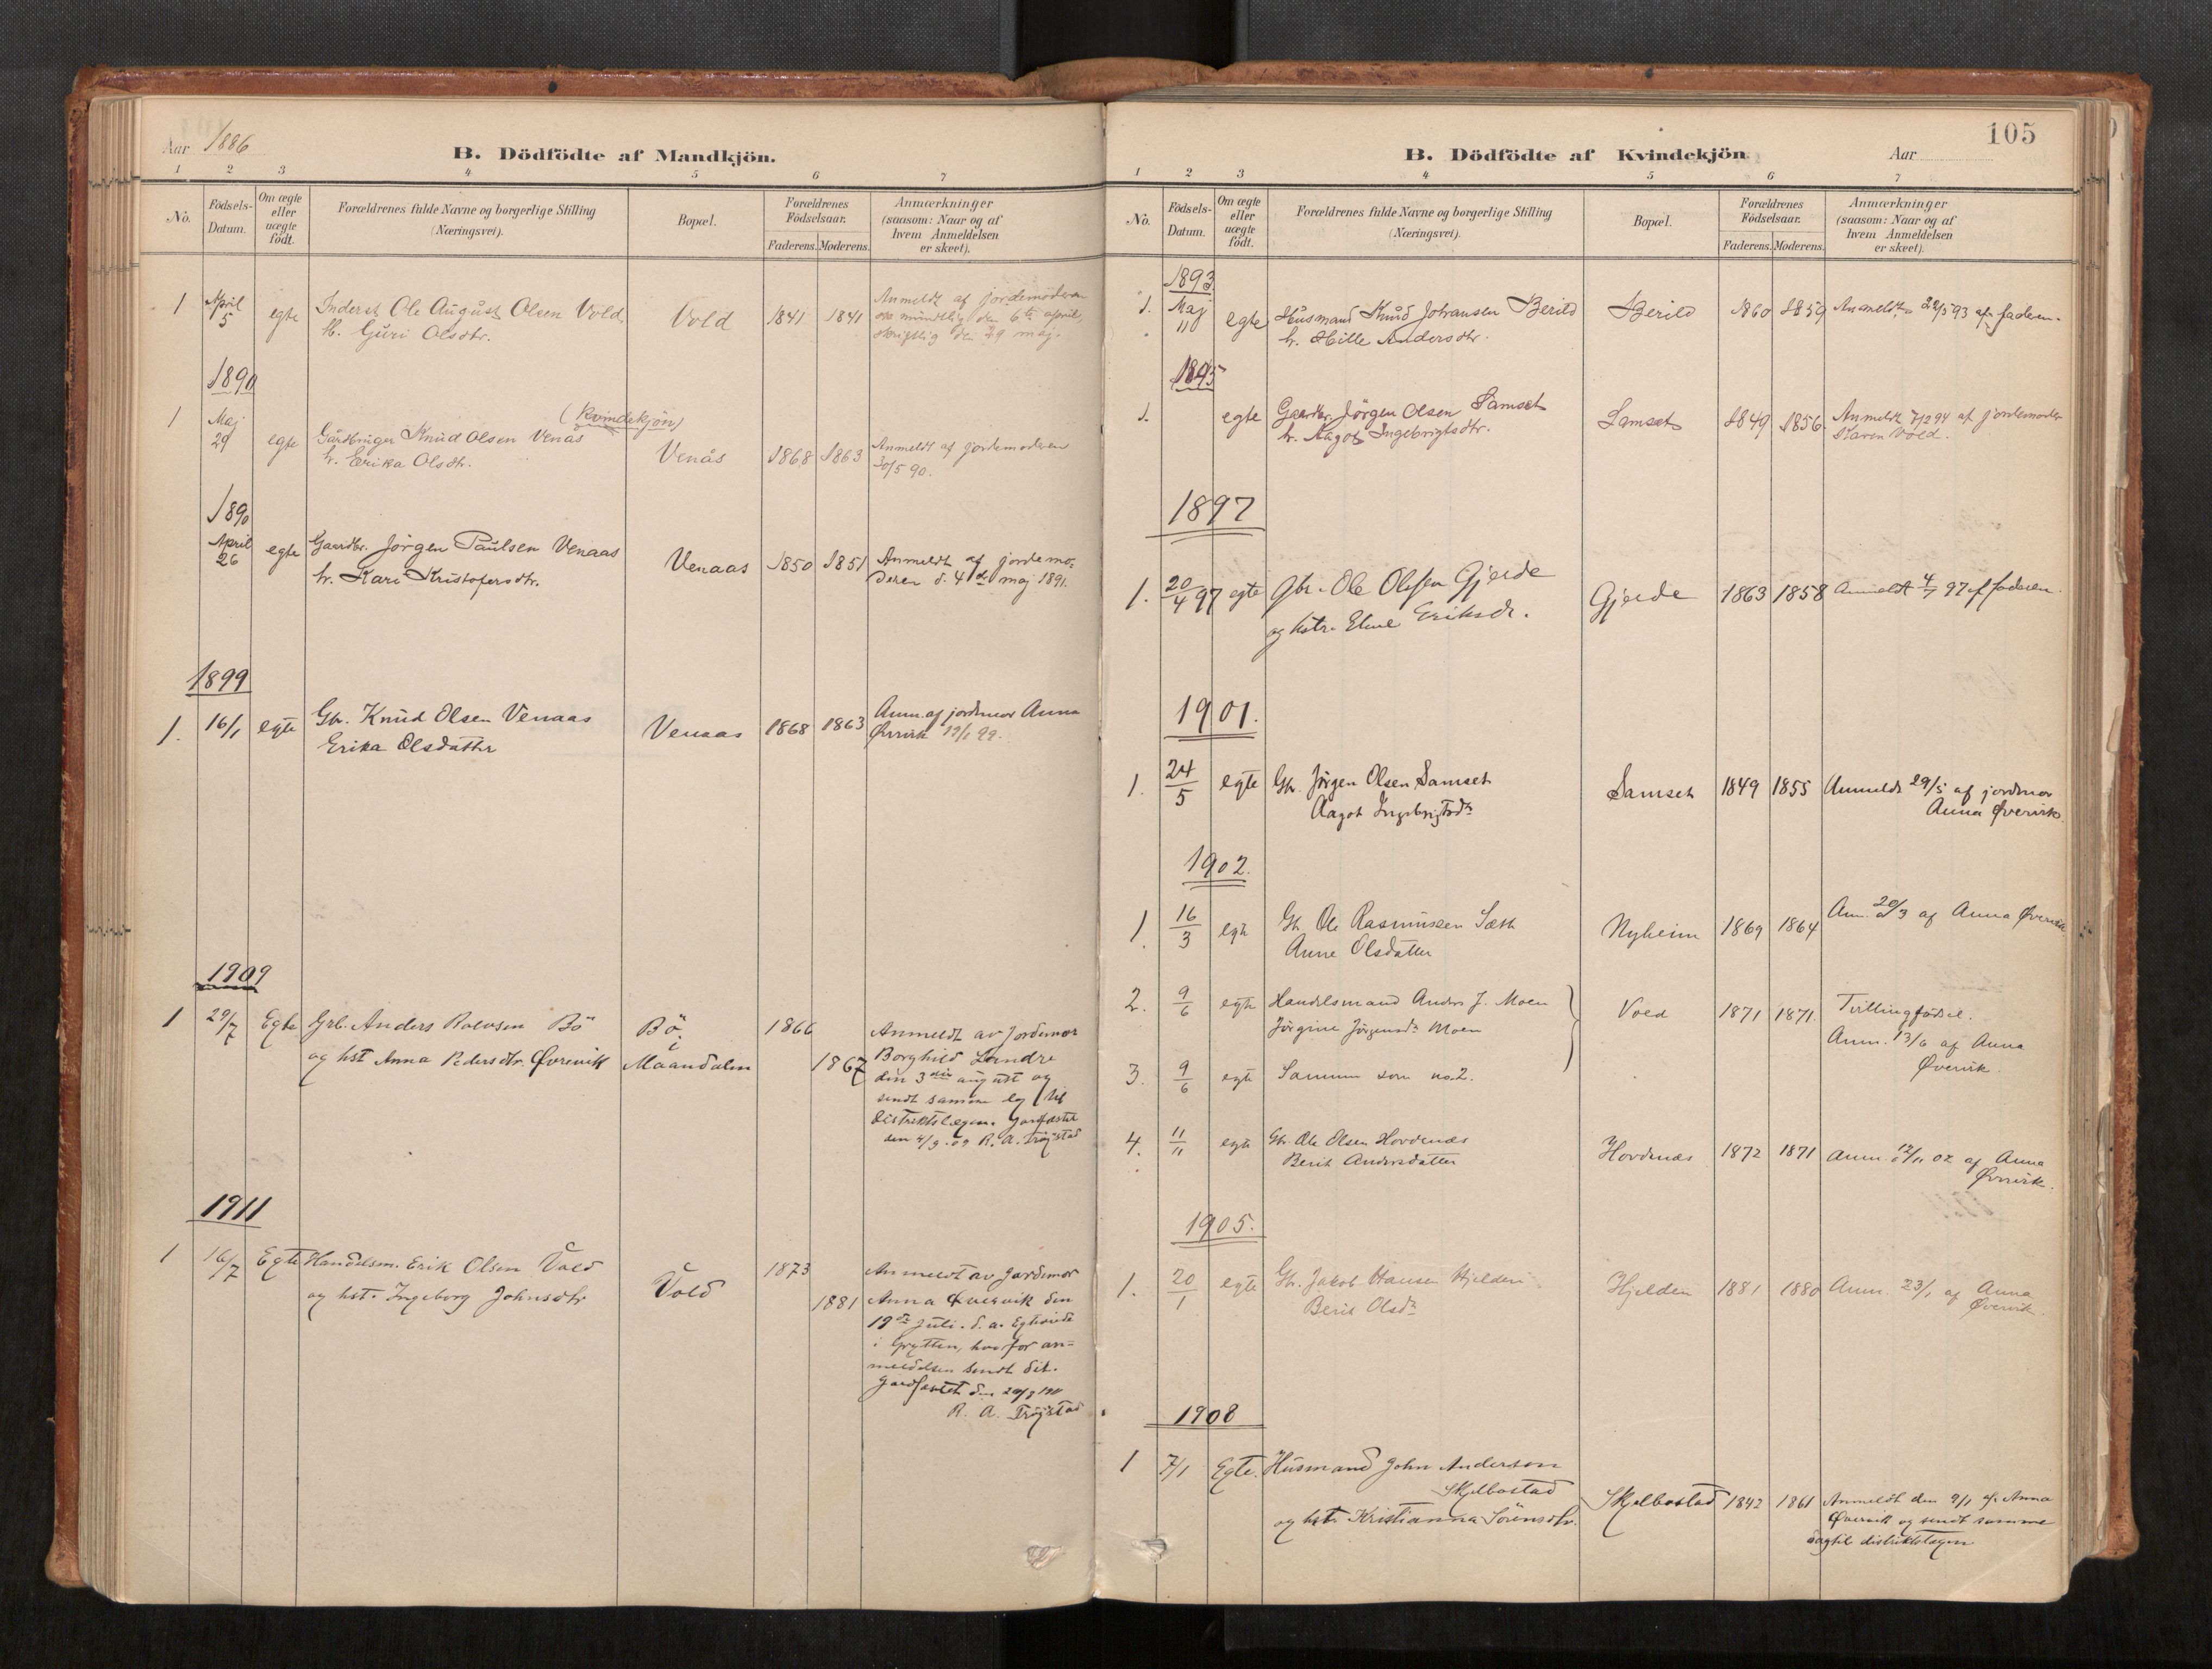 Aar 1886
B. Dödfödte af Mandkjön.
1 2 3 4 5 6 7
No.
Födsels-
Datum.
Om ægte
eller
uægte
födt.
Forældrenes fulde Navne og borgerlige Stilling
(Næringsvei).
Bopæl.
Forældrenes
Födselsaar.
Faderens. Moderens.
Anmærkninger
(saasom: Naar og af
hvem Anmeldelsen
er skeet).
1 April 5 egte Inderst Ole August Olsen Vold
H. Guri Olsdtr.
Vold 1841 1841
Anmeldt af jordemoderen
mundtlig den 6te april,
skriftlig den 29 maj.
1890
1 Maj 29 egte (Kvindekjön)
Gårdbruger Knud Olsen Venås
h. Erika Olsdtr.
Venås 1868 1863
Anmeldt af jordemoderen
30/5 90.
1890
April 26 egte Gaardbr. Jörgen Paulsen Venaas
h. Kari Kristofersdtr.
Venaas 1850 1851
Anmeldt af jordemo-
deren d. 4de maj 1891.
1899
1. 16/1 egte Gbr. Knud Olsen Venaas
Erika Olsdatter
Venaas 1868 1863
Anm. af jordmor Anna
Øvervik 19/1 99.
1909
1 29/7 Egte Grb. Anders Roevsen Bö
og hst Anna Pedersdtr. Øvrevik
Bö i
Maandalen
1866
1867
Anmeldt av Jordmor
Borghild Landre
den 3die august og
sendt samme dag til
Distriktslægen.
den 4/8. 09 R. A. Tröjstad
1911
1 16/7 Egte Handelsm. Erik Olsen Vold
og hst. Ingeborg Johnsdtr
Vold
1873
1881
Anmeldt av Jordmor
Anna Øvervik den
19de Juli. d. a.
i Grytten, hvorfor an-
meldelsen sendt dit.
R. A. Tröjstad
105
B. Dödfödte af Kvindekjön
Aar
1 2 3 4 5 6 7
No.
Födsels-
Datum.
Om ægte
eller
uægte
födt.
Forældrenes fulde Navne og borgerlige Stilling
(Næringsvei).
Bopæl.
Forældrenes
Födselsaar.
Faderens. Moderens.
Anmærkninger
(saasom: Naar og af
hvem Anmeldelsen
er skeet).
1893
1. Maj 11 egte Husmand Knud Johansen Berild
h. Hille Andersdtr.
Berild 1860 1859
Anmeldt 22/5 93 af faderen.
1895
1. egte Gaardbr. Jörgen Olsen Samset
h. Aagot Ingebrigtsdtr.
Samset 1849 1856
Anmeldt 7/2 94 af jordemoder
Karen Vold.
1897
1. 20/4 97 egte Gbr. Ole Olsen Gjerde
og hstr. Eline Eriksdr.
Gjerde 1863 1858
Anmeldt 4/7 97 af faderen.
1901.
1. 24/5 egte Gbr. Jörgen Olsen Samset
Aagot Ingebrigtsdr
Samset 1849 1855
Anmeldt 29/5 af jordmor
Anna Øvervik.
1902.
1. 16/3 egte Gbr. Ole Rasmussen Sæth
Anne Olsdatter
Nyheim 1869 1864
Anm. 20/3 af Anna Øvervik
2. 9/6 egte Handelsmand Anders J. Moen
Jörgine Jörgensdr Moen
Vold 1871 1871.
Tvillingfødsel.
Anm. 13/6 af Anna
Øvervik.
3. 9/6 egte Samme som no. 2.
4. 11/11 egte Gbr. Ole Olsen Hovdenæs
Berit Andersdatter
Hovdenæs 1872 1871
Anm. 12/11 02 af Anna
Øvervik.
1905.
1. 20/1 egte Gbr. Jakob Hansen Hjelden
Berit Olsdr
Hjelden 1881 1880
Anm. 23/1 af Anna
Øvervik.
1908
1 7/1 Egte. Husmand John Anderson
Skjelbostad
og hst. Kristianna Sörensdtr.
Skjelbostad 1842 1861
Anmeldt den 9/1 af Anna
Øvervik og sendt samme
dag til distriktslægen